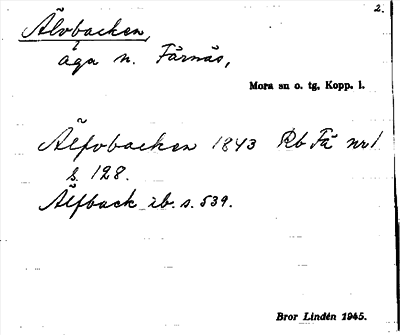 2.
Älvbacken,
äga n. Färnäs,
Mora sn o. tg, Kopp. l.
Älfvbacken 1843 Rb Fä nr 1
s. 128.
Älfback rb. s. 539.
Bror Lindén 1945.